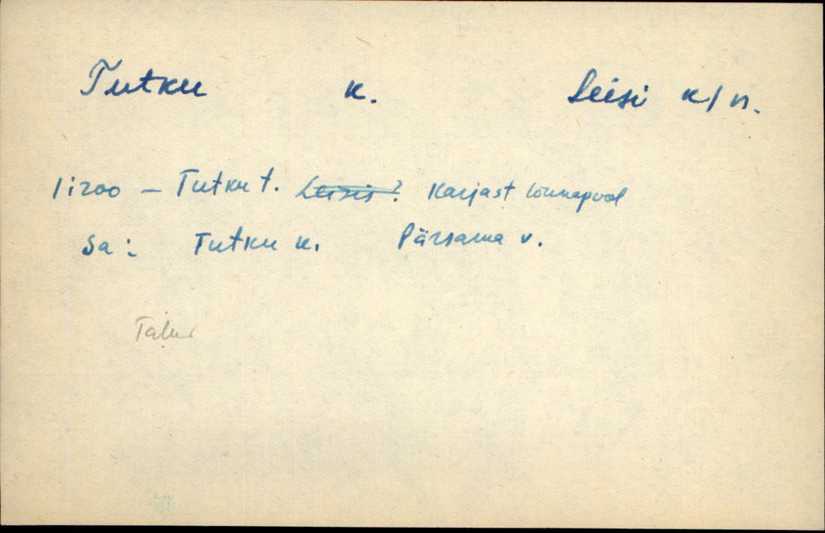 Tutku k. Leisi k/n.
1:200 – Tutku t. ~~Leisis?~~ Karjast lõunapool
Sa: Tutku k. Pärsama v.
Talu